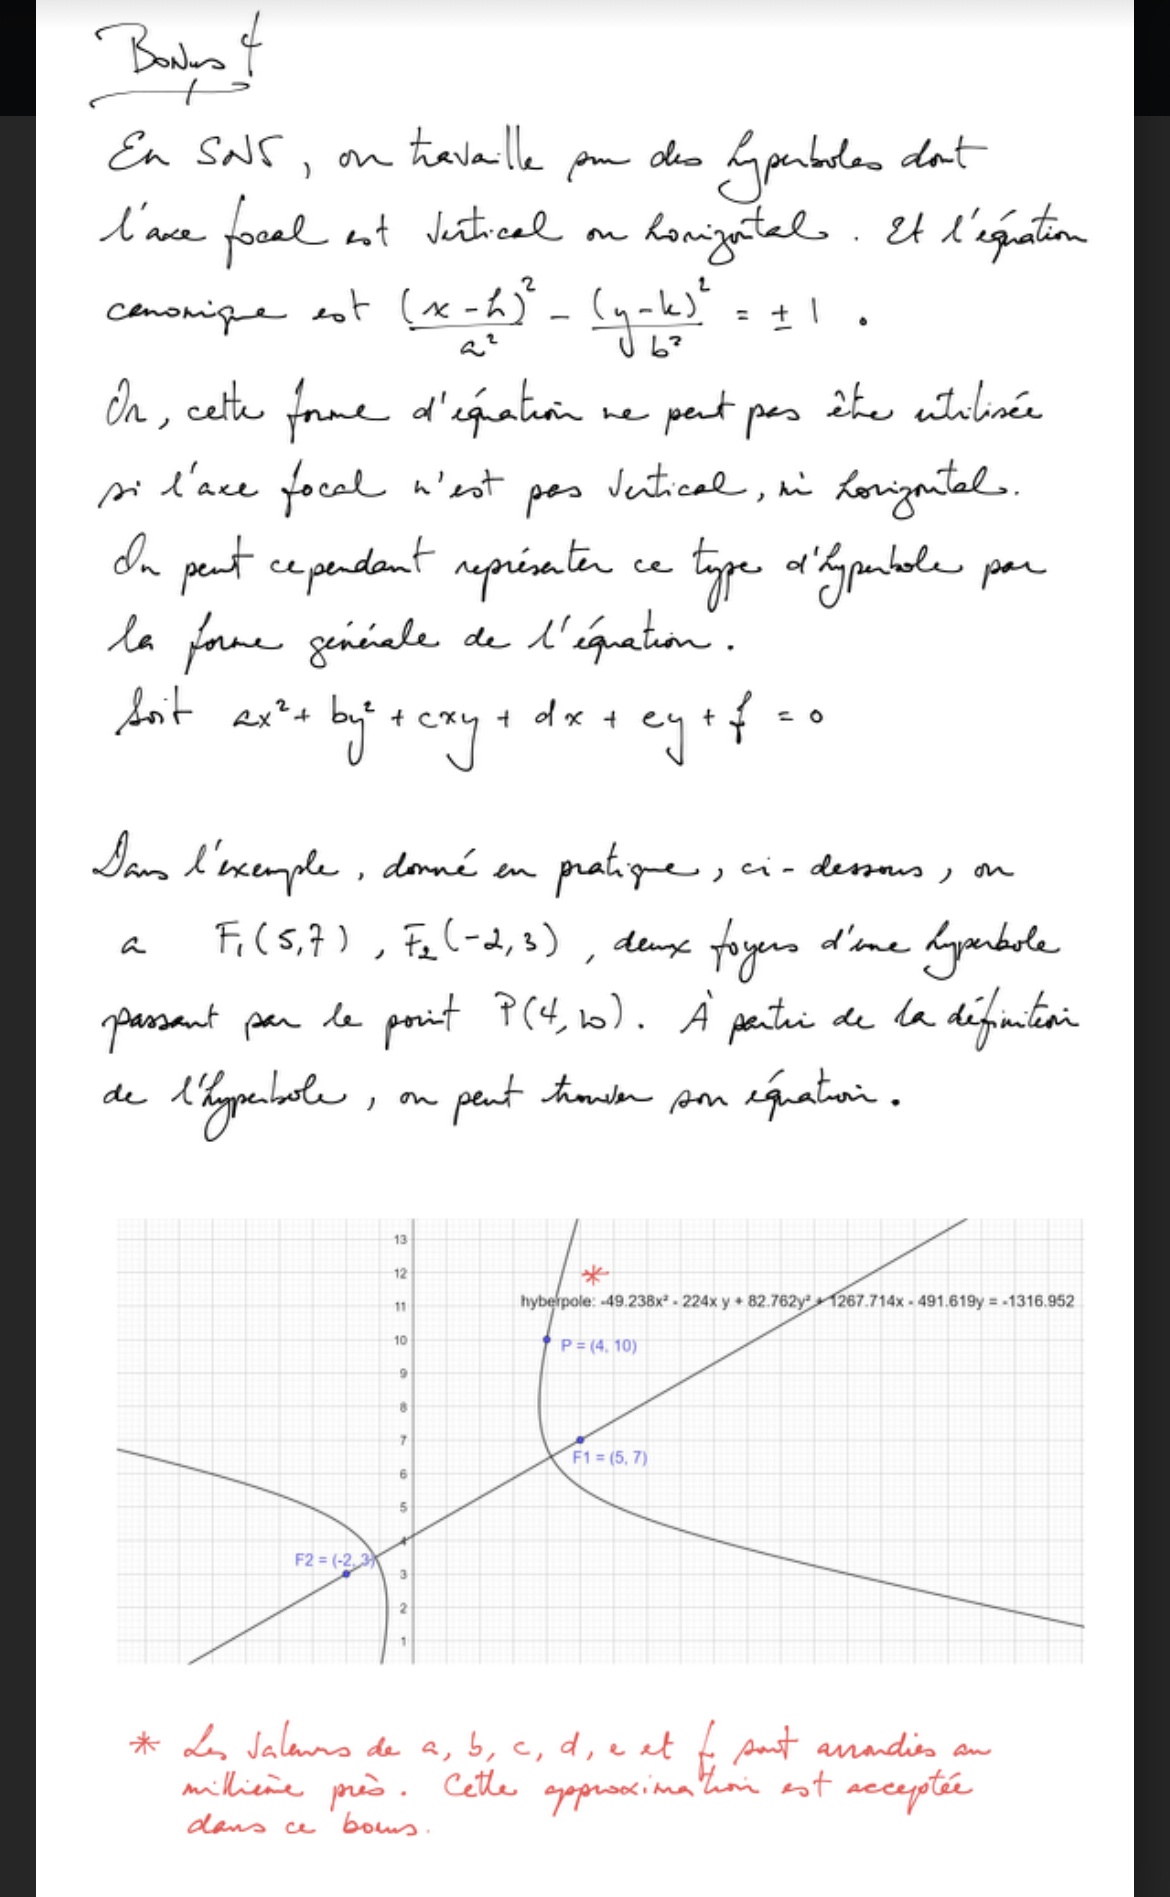 Bonus 4
En SN5, on travaille sur des hyperboles dont
l'axe focal est vertical ou horizontal. Et l'équation
canonique est (x-h)²/a² - (y-k)²/b² = ± 1.
Or, cette forme d'équation ne peut pas être utilisée
si l'axe focal n'est pas vertical, ni horizontal.
On peut cependant représenter ce type d'hyperbole par
la forme générale de l'équation.
Soit ax² + by² + cxy + dx + ey + f = 0
Dans l'exemple, donné en pratique, ci-dessous, on
a F₁(5,7), F₂(-2,3), deux foyers d'une hyperbole
passant par le point P(4,10). À partir de la définition
de l'hyperbole, on peut trouver son équation.
13
12
*
hyberpole: -49.238x² - 224x y + 82.762y² + 1267.714x - 491.619y = -1316.952
11
10
P = (4, 10)
9
8
7
F1 = (5, 7)
6
5
4
F2 = (-2, 3)
3
2
1
* Les valeurs de a, b, c, d, e et f sont arrondies au
millième près. Cette approximation est acceptée
dans ce bonus.